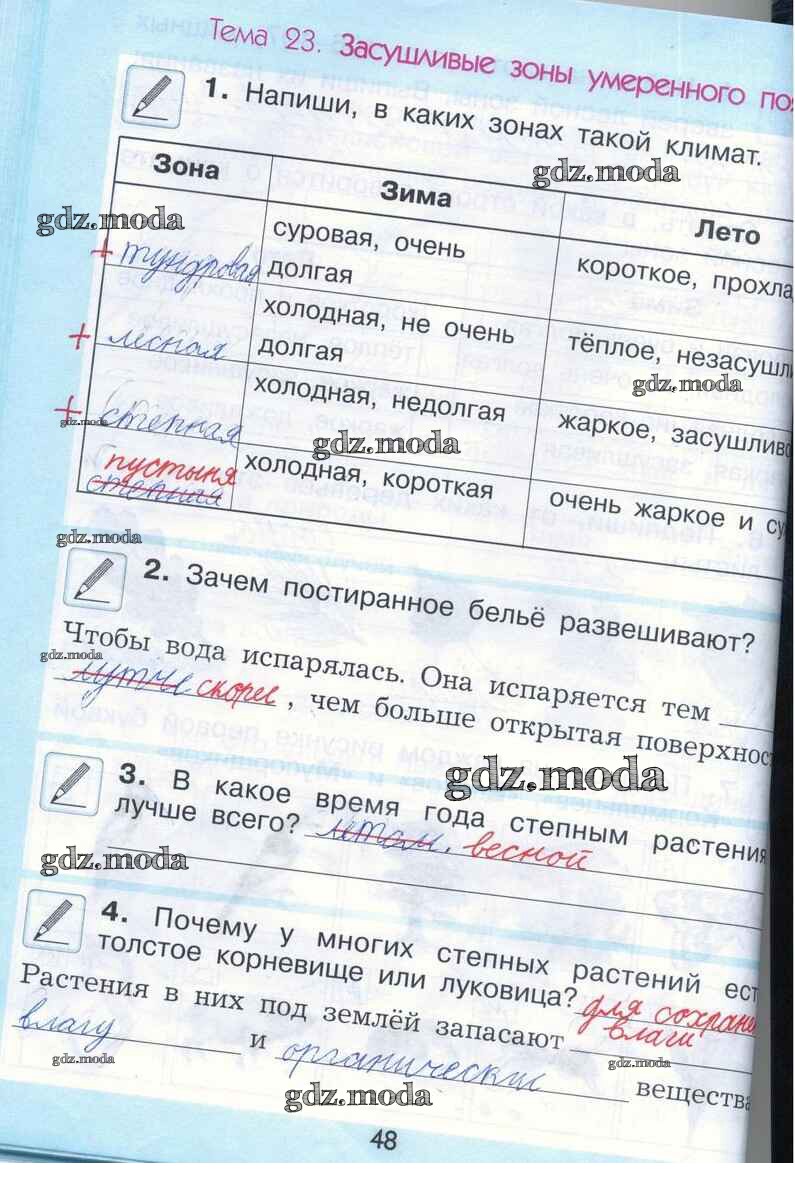 Тема 23. Засушливые зоны умеренного поя
1. Напиши, в каких зонах такой климат.
Зона
Зима
Лето
gdz.moda
gdz.moda
+ тундровая
суровая, очень
долгая
короткое, прохлад
+ лесная
холодная, не очень
долгая
тёплое, незасушли
gdz.moda
+ степная
gdz.moda
холодная, недолгая
gdz.moda
жаркое, засушливо
пустыня
степная
холодная, короткая
очень жаркое и су
gdz.moda
2. Зачем постиранное бельё развешивают?
Чтобы вода испарялась. Она испаряется тем
gdz.moda
лутче скорее, чем больше открытая поверхнос
gdz.moda
3. В какое время года степным растения
лучше всего? летом, весной
gdz.moda
4. Почему у многих степных растений ест
толстое корневище или луковица? для сохране
Растения в них под землёй запасают влаги
влагу и органические вещества
gdz.moda
gdz.moda
gdz.moda
48